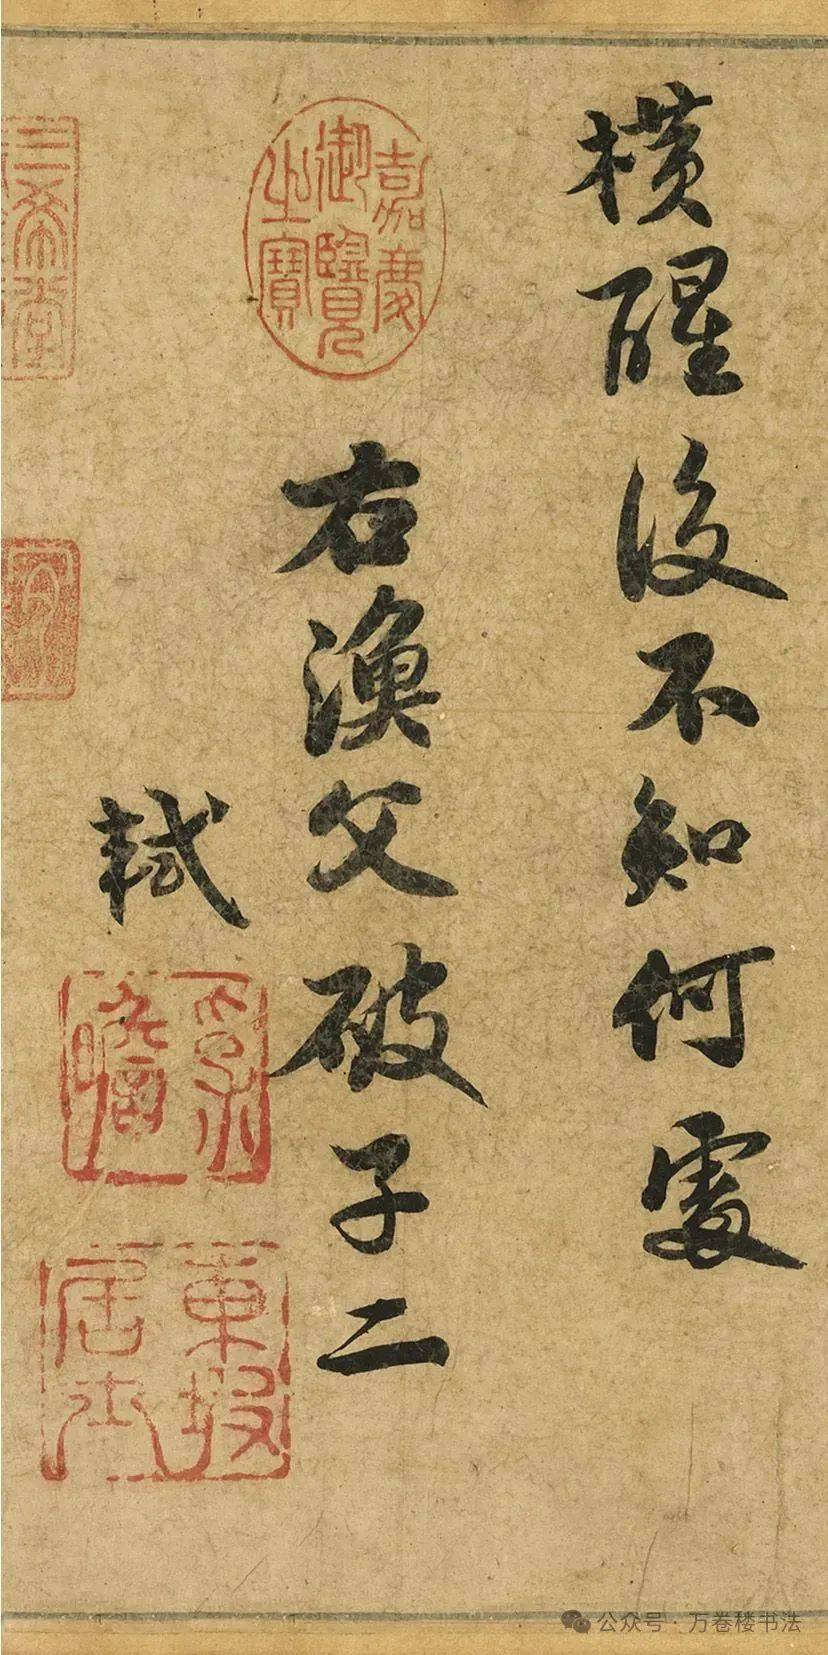 横醒後不知何處
右漁父破子二
軾
嘉慶
御覽
之寶
三希堂
子瞻
東坡
居士
公众号 · 万卷楼书法